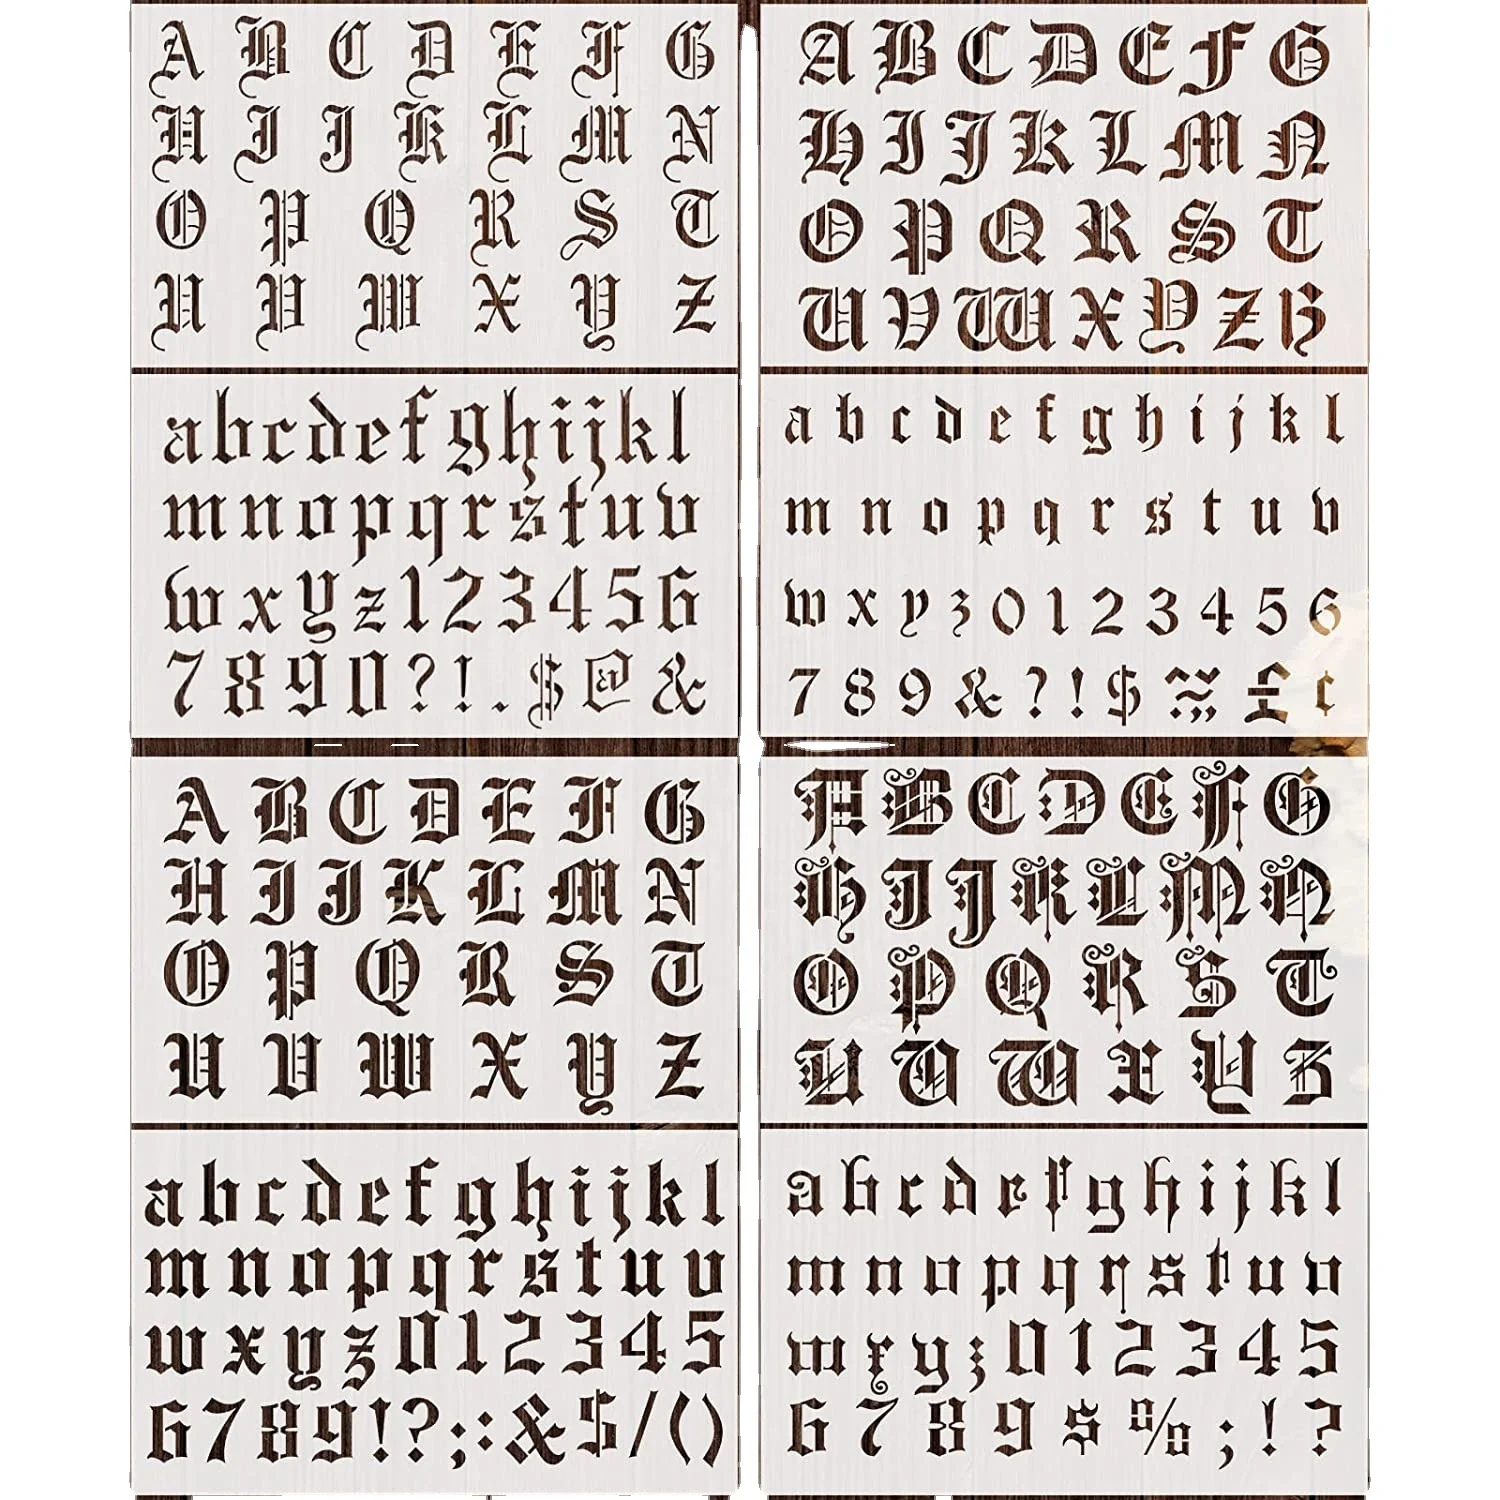 A B C D E F G
H I J K L M N
O P Q R S T
U V W X Y Z
a b c d e f g h i j k l
m n o p q r s t u v
w x y z 1 2 3 4 5 6
7 8 9 0 ? ! . $ @ &
A B C D E F G
H I J K L M N
O P Q R S T
U V W X Y Z
a b c d e f g h i j k l
m n o p q r s t u v
w x y z 0 1 2 3 4 5 6
7 8 9 & ? ! $ £ ¢
A B C D E F G
H I J K L M N
O P Q R S T
U V W X Y Z
a b c d e f g h i j k l
m n o p q r s t u v
w x y z 0 1 2 3 4 5
6 7 8 9 ! ? ; : & $ / ( )
A B C D E F G
H I J K L M N
O P Q R S T
U V W X Y Z
a b c d e f g h i j k l
m n o p q r s t u v
w x y z 0 1 2 3 4 5
6 7 8 9 $ % ; ! ?